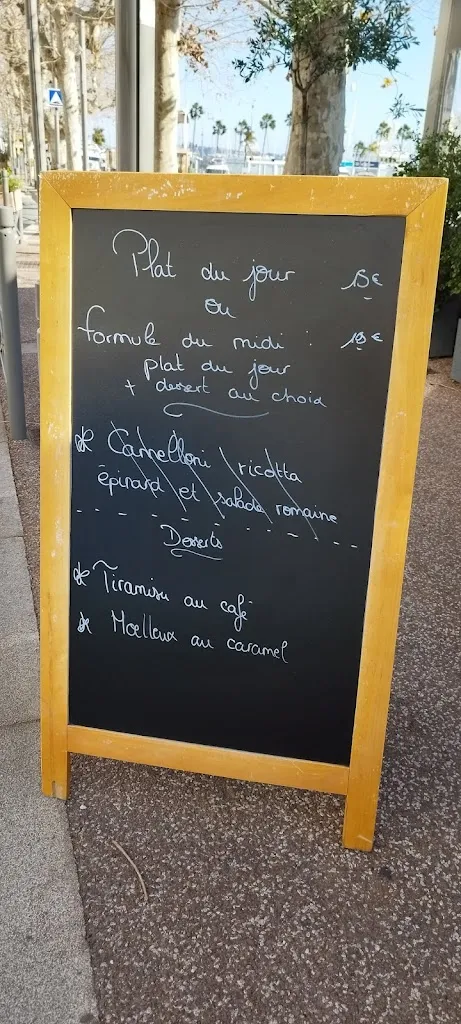 Plat du jour 15€
ou
formule du midi : 19€
plat du jour
+ dessert au choix
* Cannelloni ricotta
épinard et salade romaine
Desserts
* Tiramisu au café
* Moelleux au caramel